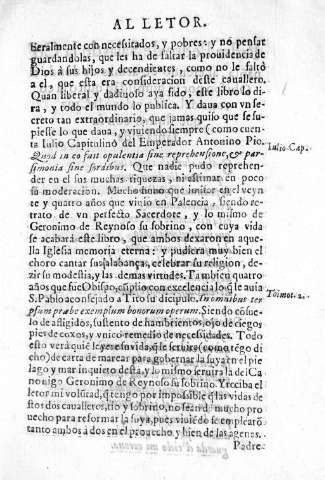 AL LETOR.
beralmente con necesitados, y pobres: y no pensar
guardandolas, que les ha de faltar la prouidencia de
Dios à sus hijos y decendientes, como no le faltò
a el, que esta era consideracion deste cauallero.
Quan liberal y dadiuoso aya sido, este libro lo di-
ra, y todo el mundo lo publica. Y daua con vn se-
creto tan extraordinario, que jamas quiso que se su-
piesse lo que daua, y viuiendo siempre (como cuen-
ta Iulio Capitolino del Emperador Antonino Pio.
Iulio Cap.
Quod in eo fuit opulentia sine reprehensione, & par-
simonia sine sordibus. Que nadie pudo reprehen-
der en el sus muchas riquezas, ni estimar en poco
su moderacion. Mucho huuo que imitar en el veyn
te y quatro años que viuio en Palencia, siendo re-
trato de vn perfecto Sacerdote, y lo mismo de
Geronimo de Reynoso su sobrino, con cuya vida
se acabarà este libro, que ambos dexaron en aque-
lla Iglesia memoria eterna: y pudiera muy bien el
choro cantar sus alabanças, celebrar su religion, de-
zir su modestia, y las demas virtudes. Tambien quatro
años que fue Obispo, cumplio con excelencia lo que auia
S. Pablo aconsejado a Tito su dicipulo. In omnibus te
ipsum præbe exemplum bonorum operum. Siendo cósue-
lo de afligidos, sustento de hambrientos, ojo de ciegos
pies de coxos, y vnico remedio de necesidades. Todo
esto verá quié leyere su vida, que le seruira (como tégo di
cho) de carta de marear para gobernar la suya en el pie
lago y mar inquieto desta, y lo mismo
nonigo Geronimo de Reynoso su sobrino. Y reciba el
letor mi volútad, que tengo por impossible que las vidas de
stos dos caualleros, tio y sobrino, no sean de mucho pro
uecho para reformar la suya, pues viuiédo se emplearó
tanto ambos à dos en el prouecho, y bien de las agenas.
Padre